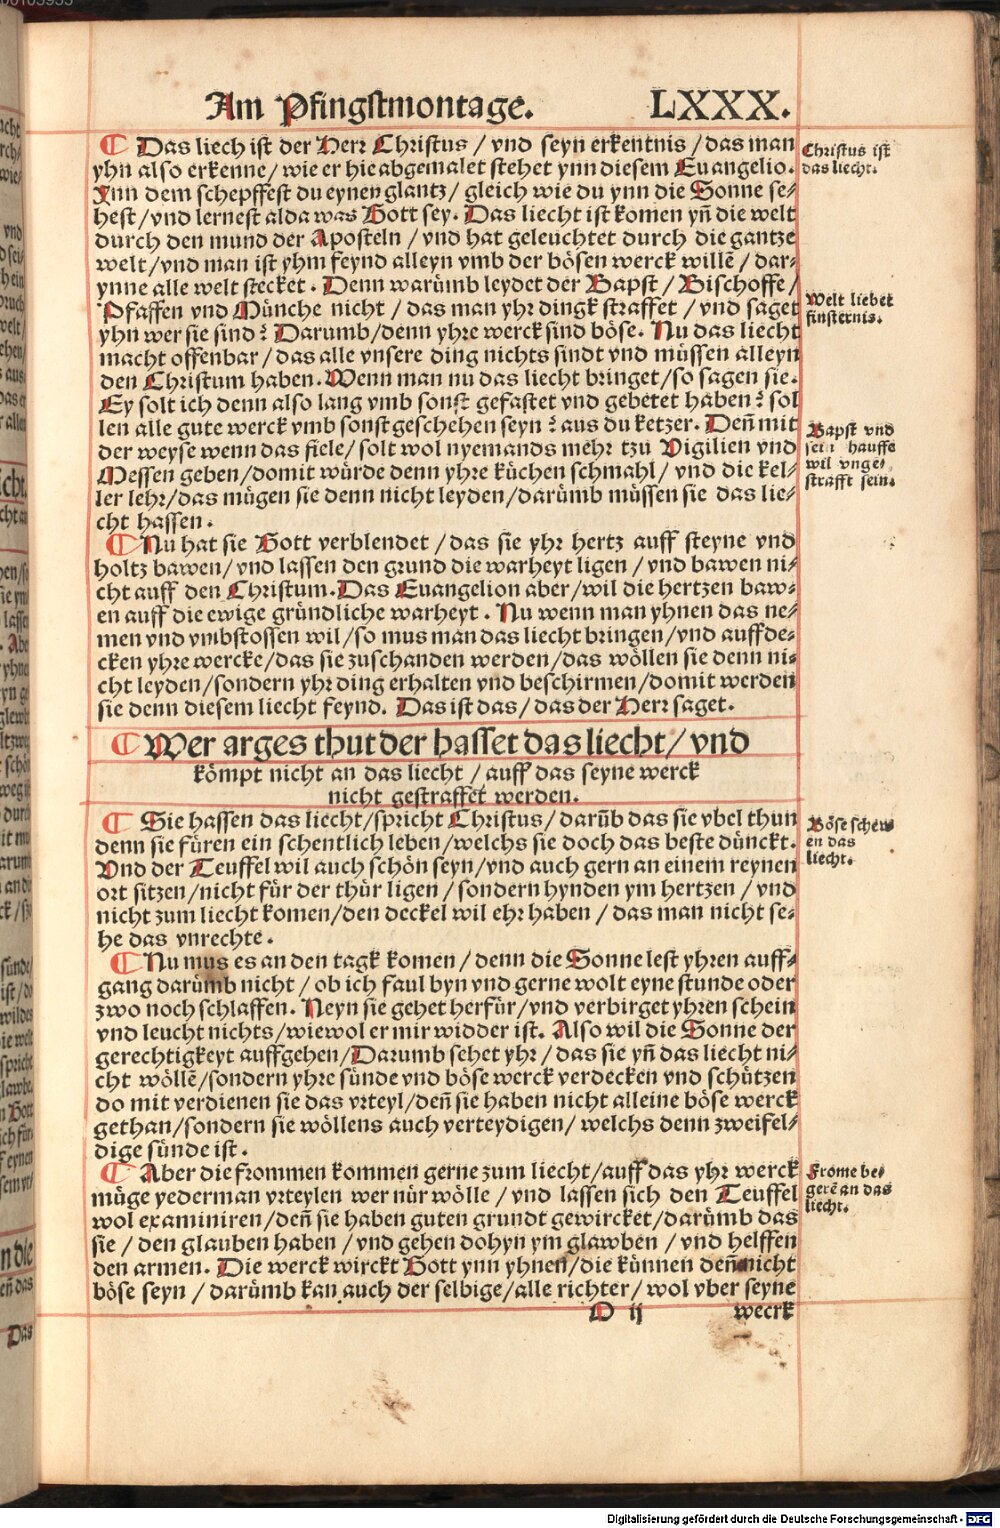 Am Pfingstmontage. LXXX.
¶ Das liech ist der Herr Christus / vnd seyn erkentnis / das man
yhn also erkenne / wie er hie abgemalet stehet ynn diesem Euangelio.
Ynn dem schepffest du eynen glantz / gleich wie du ynn die Sonne se⸗
hest / vnd lernest alda was Gott sey. Das liecht ist komen yñ die welt
durch den mund der Aposteln / vnd hat geleuchtet durch die gantze
welt / vnd man ist yhm feynd alleyn vmb der bösen werck willẽ / dar⸗
ynne alle welt stecket. Denn warümb leydet der Bapst / Bischoffe /
Pfaffen vnd Münche nicht / das man yhr dingk straffet / vnd saget
yhn wer sie sind? Darumb / denn yhre werck sind böse. Nu das liecht
macht offenbar / das alle vnsere ding nichts sindt vnd müssen alleyn
den Christum haben. Wenn man nu das liecht bringet / so sagen sie.
Ey solt ich denn also lang vmb sonst gefastet vnd gebetet haben? sol
len alle gute werck vmb sonst geschehen seyn? aus du ketzer. Deñ mit
der weyse wenn das fiele / solt wol nyemands mehr tzu Vigilien vnd
Messen geben / domit würde denn yhre küchen schmahl / vnd die kel⸗
ler lehr / das mügen sie denn nicht leyden / darümb müssen sie das lie⸗
cht hassen.
¶ Nu hat sie Gott verblendet / das sie yhr hertz auff steyne vnd
holtz bawen / vnd lassen den grund die warheyt ligen / vnd bawen ni⸗
cht auff den Christum. Das Euangelion aber / wil die hertzen baw⸗
en auff die ewige gründliche warheyt. Nu wenn man yhnen das ne⸗
men vnd vmbstossen wil / so mus man das liecht bringen / vnd auffde⸗
cken yhre wercke / das sie zuschanden werden / das wöllen sie denn ni⸗
cht leyden / sondern yhr ding erhalten vnd beschirmen / domit werden
sie denn diesem liecht feynd. Das ist das / das der Herr saget.
¶ Wer arges thut der hasset das liecht / vnd
kömpt nicht an das liecht / auff das seyne werck
nicht gestraffet werden.
¶ Sie hassen das liecht / spricht Christus / darüb das sie vbel thun
denn sie füren ein schentlich leben / welchs sie doch das beste dünckt.
Vnd der Teuffel wil auch schön seyn / vnd auch gern an einem reynen
ort sitzen / nicht für der thür ligen / sondern hynden ym hertzen / vnd
nicht zum liecht komen / den deckel wil ehr haben / das man nicht se⸗
he das vnrechte.
¶ Nu mus es an den tagk komen / denn die Sonne lest yhren auff⸗
gang darümb nicht / ob ich faul byn vnd gerne wolt eyne stunde oder
zwo noch schlaffen. Neyn sie gehet herfür / vnd verbirget yhren schein
vnd leucht nichts / wiewol er mir widder ist. Also wil die Sonne der
gerechtigkeyt auffgehen / Darumb sehet yhr / das sie yñ das liecht ni⸗
cht wöllẽ / sondern yhre sünde vnd böse werck verdecken vnd schützen
do mit verdienen sie das vrteyl / deñ sie haben nicht alleine böse werck
gethan / sondern sie wöllens auch verteydigen / welchs denn zweifel⸗
dige sünde ist.
¶ Aber die frommen kommen gerne zum liecht / auff das yhr werck
müge yederman vrteylen wer nür wölle / vnd lassen sich den Teuffel
wol examiniren / deñ sie haben guten grundt gewircket / darümb das
sie / den glauben haben / vnd gehen dohyn ym glawben / vnd helffen
den armen. Die werck wirckt Gott ynn yhnen / die künnen deñ nicht
böse seyn / darümb kan auch der selbige / alle richter / wol vber seyne
O ij wecrk
Christus ist
das liecht.
Welt liebet
finsternis.
Bapst vnd
sein hauffe
wil vnge⸗
strafft sein.
Böse schew
en das
liecht.
Frome be⸗
gerẽ an das
liecht.
Digitalisierung gefördert durch die Deutsche Forschungsgemeinschaft - DFG